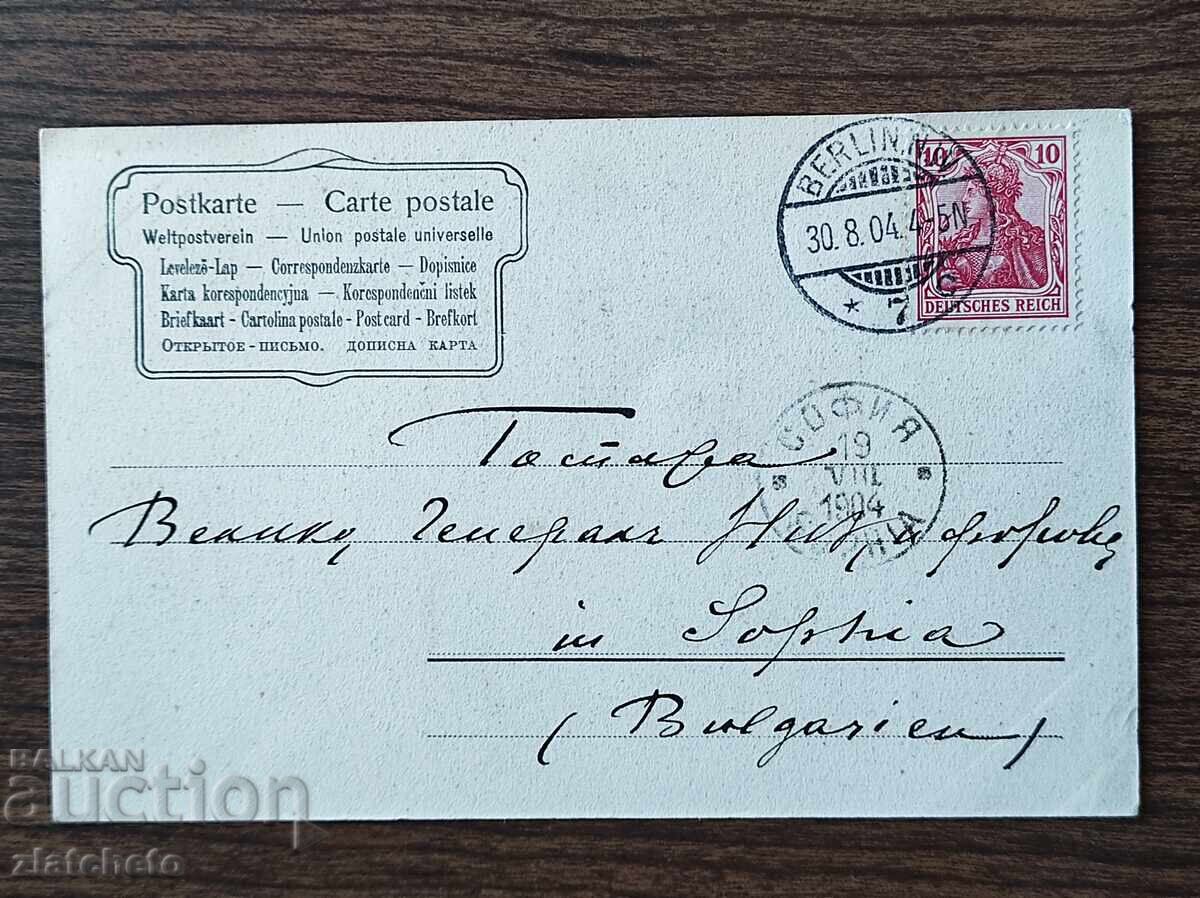 Postkarte — Carte postale
Weltpostverein — Union postale universelle
Levelezö-Lap — Correspondenzkarte — Dopisnice
Karta korespondencyjna — Korespondenčni listek
Briefkaart - Cartolina postale - Post card - Brefkort
ОТКРЫТОЕ - ПИСЬМО. ДОПИСНА КАРТА
BERLIN.N.W
30. 8. 04. 4-5N
* 7 c
10 10
DEUTSCHES REICH
СОФИЯ
19
VIII
1904
Госпожа
Генералъ Никифорова
in Sophia
(Bulgarien)
BALKAN
auction
zlatcheto